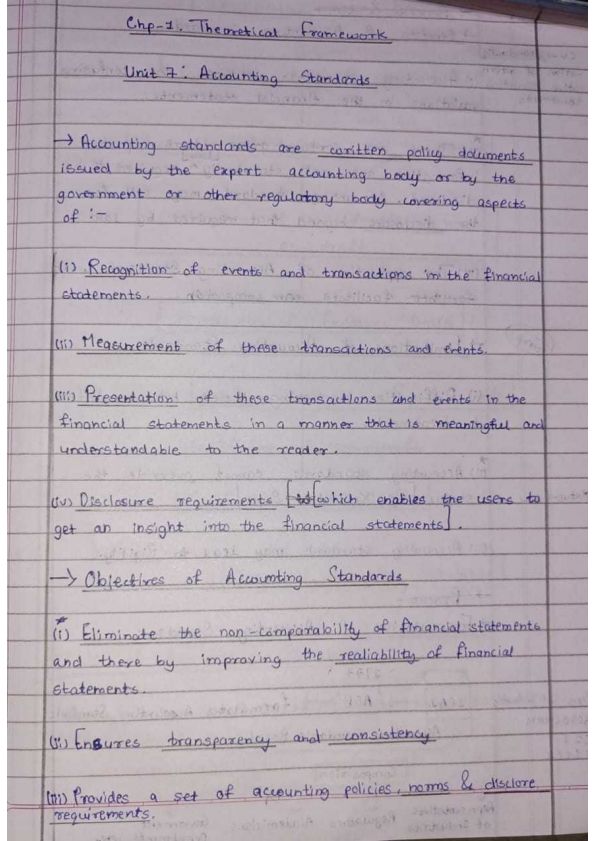 Chp-1. Theoretical Framework
Unit 7: Accounting Standards
→ Accounting standards are written policy documents
issued by the expert accounting body or by the
government or other regulatory body covering aspects
of :-
(i) Recognition of events and transactions in the financial
statements.
(ii) Measurement of these transactions and events.
(iii) Presentation of these transactions and events in the
financial statements in a manner that is meaningful and
understandable to the reader.
(iv) Disclosure requirements [which enables the users to
get an insight into the financial statements].
→ Objectives of Accounting Standards
* (i) Eliminate the non-comparability of financial statements
and there by improving the realiability of financial
statements.
(ii) Ensures transparency and consistency
(iii) Provides a set of accounting policies, norms & disclore
requirements.